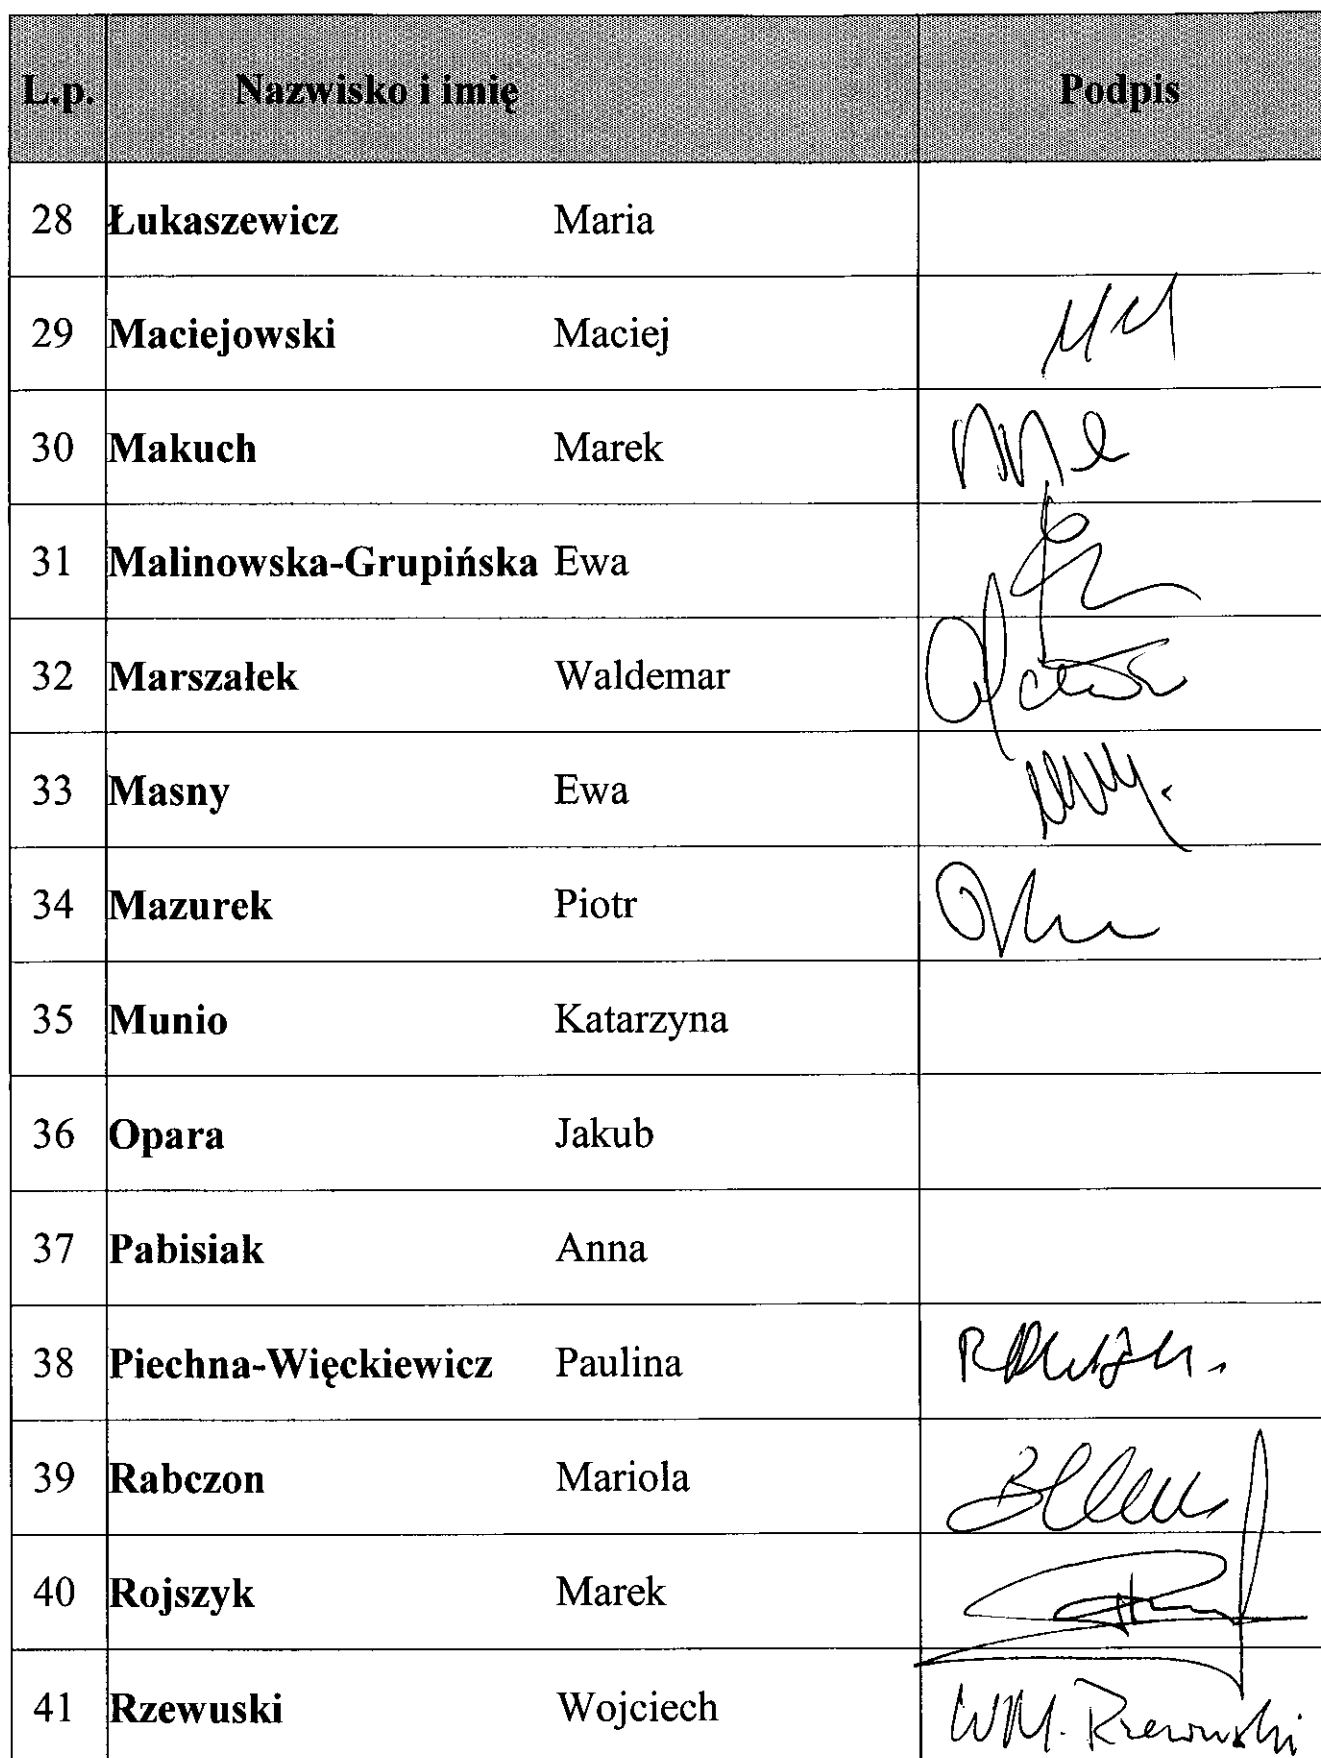 L.p. Nazwisko i imię Podpis
28 Łukaszewicz Maria
29 Maciejowski Maciej
30 Makuch Marek
31 Malinowska-Grupińska Ewa
32 Marszałek Waldemar
33 Masny Ewa
34 Mazurek Piotr
35 Munio Katarzyna
36 Opara Jakub
37 Pabisiak Anna
38 Piechna-Więckiewicz Paulina
39 Rabczon Mariola
40 Rojszyk Marek
41 Rzewuski Wojciech WM. Rzewuski